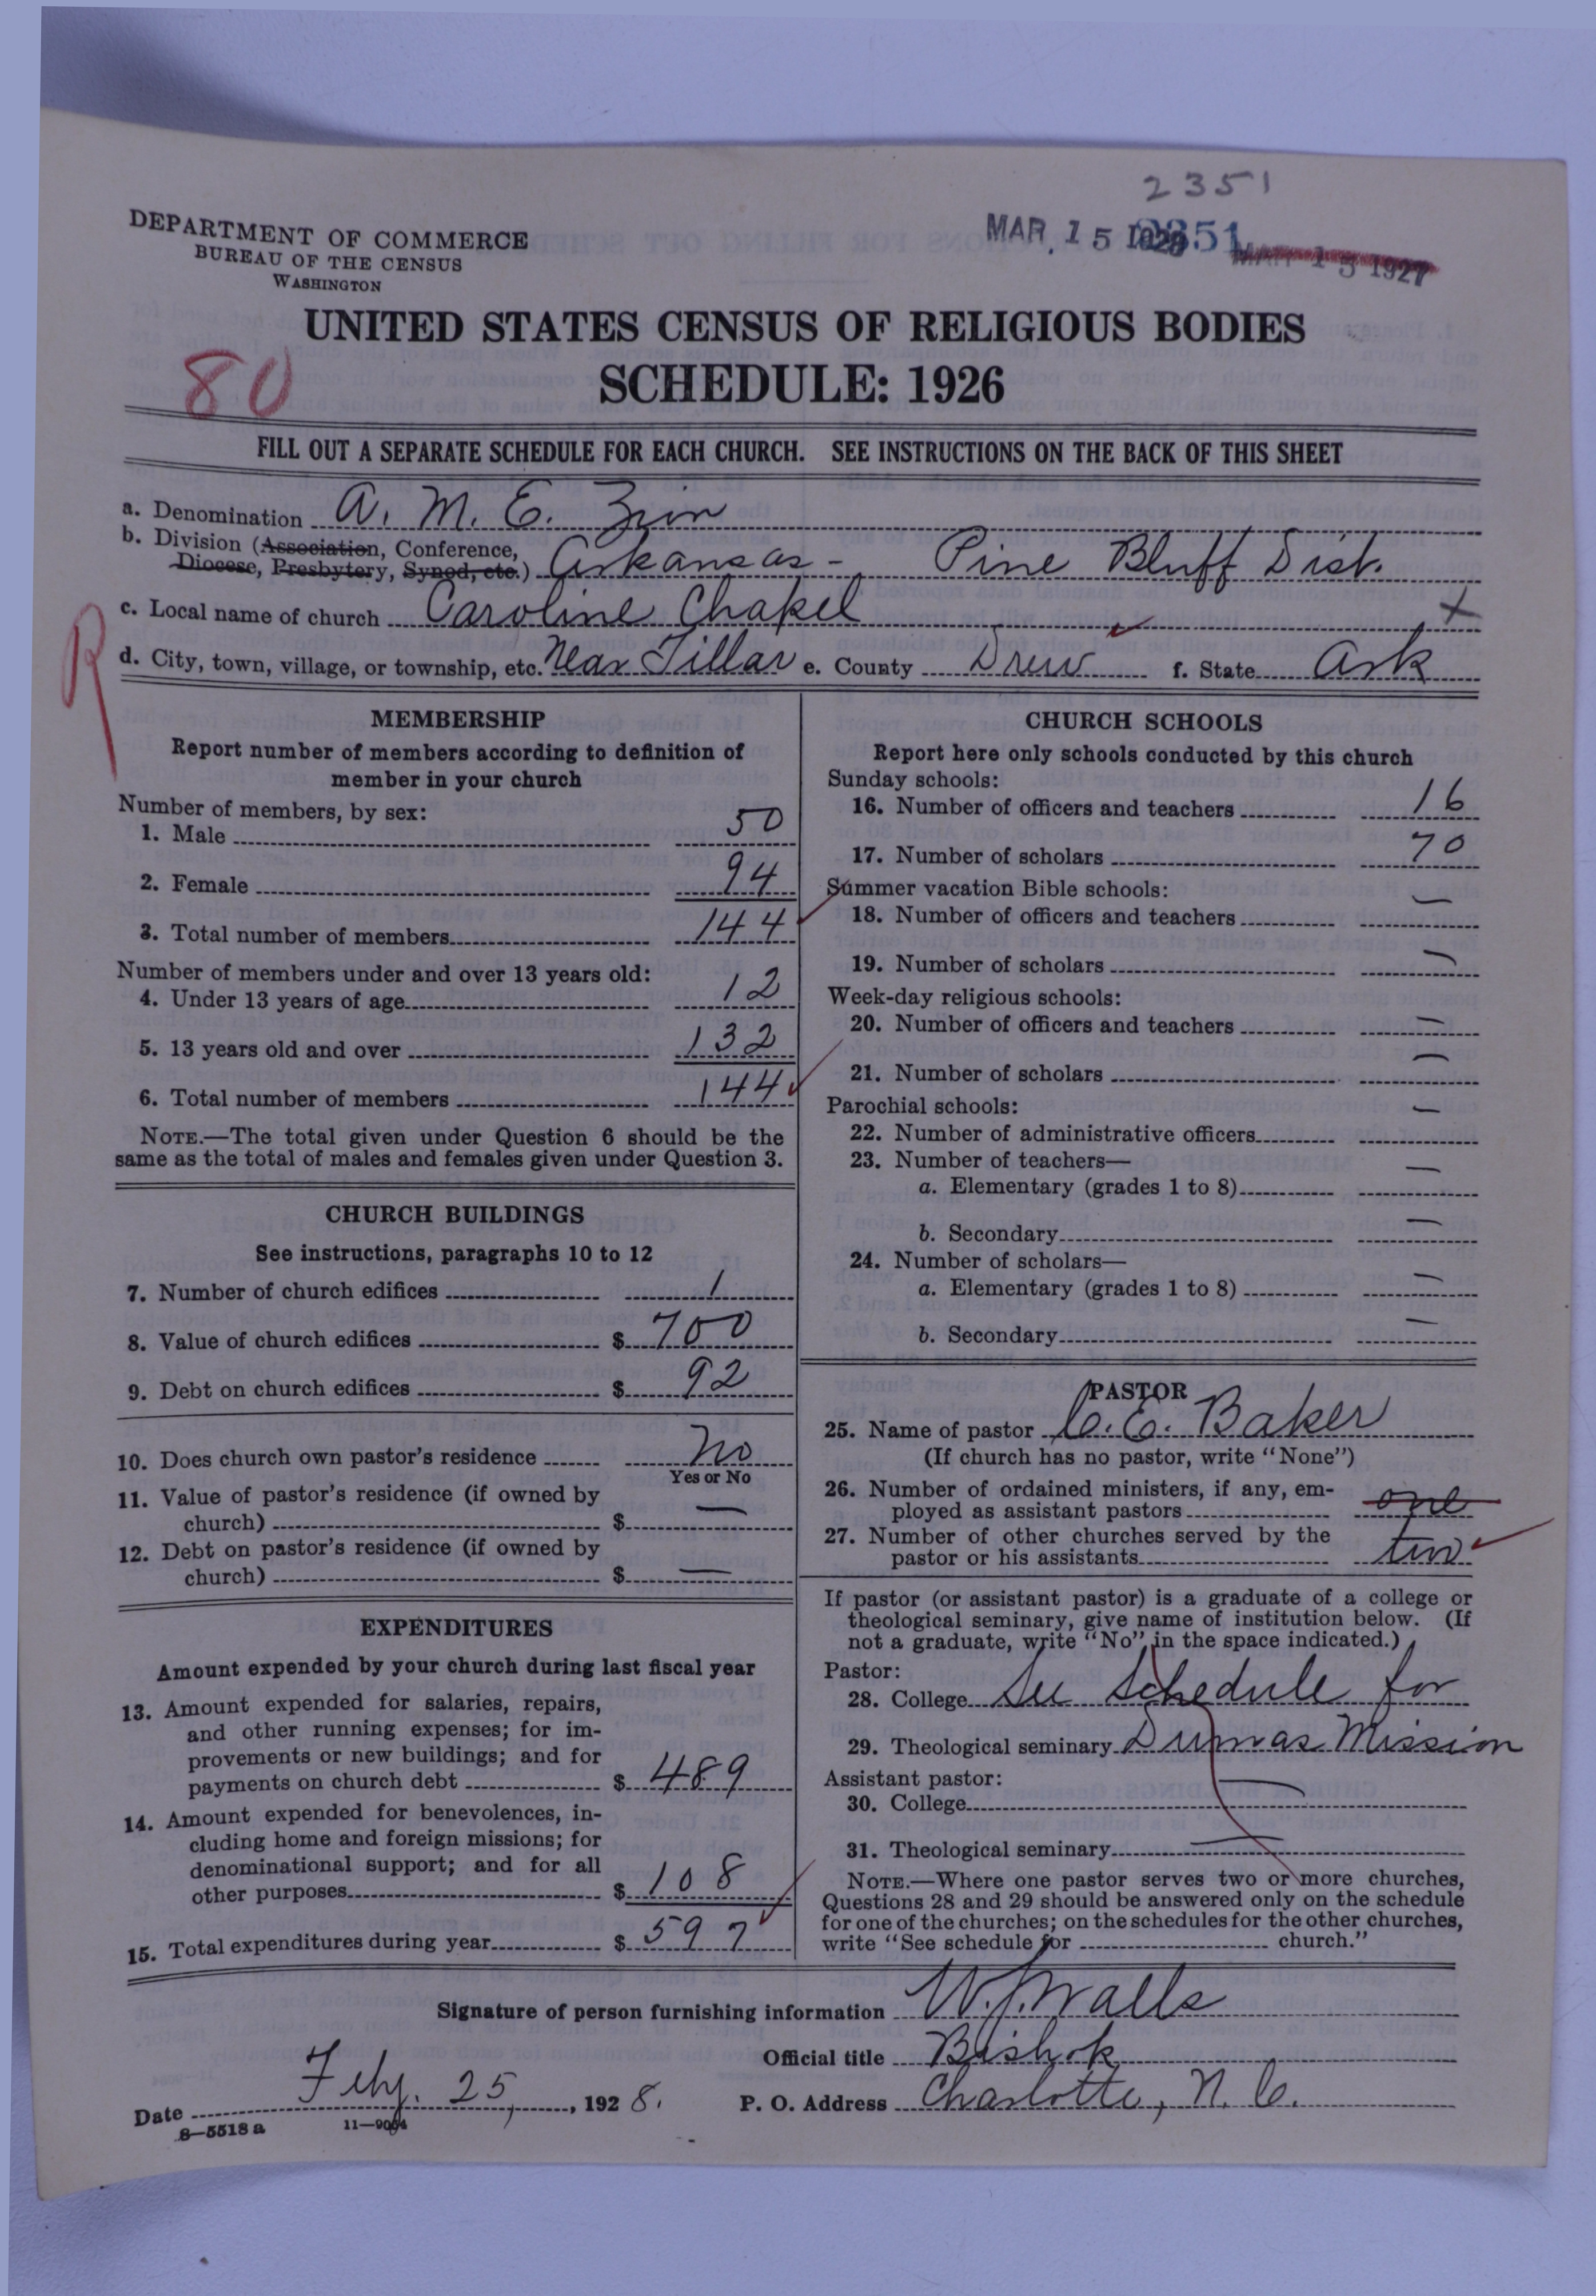 2351
DEPARTMENT OF COMMERCE
BUREAU OF THE CENSUS
WASHINGTON
MAR. 15 1928 2351 MAR 15 1927
UNITED STATES CENSUS OF RELIGIOUS BODIES
SCHEDULE: 1926
80
FILL OUT A SEPARATE SCHEDULE FOR EACH CHURCH. SEE INSTRUCTIONS ON THE BACK OF THIS SHEET
a. Denomination A. M. E. Zion
b. Division (Association, Conference,
Diocese, Presbytery, Synod, etc.) Arkansas - Pine Bluff Dist.
c. Local name of church Caroline Chapel X
R
d. City, town, village, or township, etc. Near Tillar e. County Drew f. State Ark
MEMBERSHIP
Report number of members according to definition of
member in your church
Number of members, by sex:
1. Male 50
2. Female 94
3. Total number of members 144
Number of members under and over 13 years old:
4. Under 13 years of age 12
5. 13 years old and over 132
6. Total number of members 144
NOTE.—The total given under Question 6 should be the
same as the total of males and females given under Question 3.
CHURCH BUILDINGS
See instructions, paragraphs 10 to 12
7. Number of church edifices 1
8. Value of church edifices $ 700
9. Debt on church edifices $ 92
10. Does church own pastor's residence No
Yes or No
11. Value of pastor's residence (if owned by
church) $ —
12. Debt on pastor's residence (if owned by
church) $ —
EXPENDITURES
Amount expended by your church during last fiscal year
13. Amount expended for salaries, repairs,
and other running expenses; for im-
provements or new buildings; and for
payments on church debt $ 489
14. Amount expended for benevolences, in-
cluding home and foreign missions; for
denominational support; and for all
other purposes $ 108
15. Total expenditures during year $ 597
CHURCH SCHOOLS
Report here only schools conducted by this church
Sunday schools:
16. Number of officers and teachers 16
17. Number of scholars 70
Summer vacation Bible schools:
18. Number of officers and teachers —
19. Number of scholars —
Week-day religious schools:
20. Number of officers and teachers —
21. Number of scholars —
Parochial schools:
22. Number of administrative officers —
23. Number of teachers—
a. Elementary (grades 1 to 8) —
b. Secondary —
24. Number of scholars—
a. Elementary (grades 1 to 8) —
b. Secondary —
PASTOR
25. Name of pastor C. E. Baker
(If church has no pastor, write "None")
26. Number of ordained ministers, if any, em-
ployed as assistant pastors one
27. Number of other churches served by the
pastor or his assistants two
If pastor (or assistant pastor) is a graduate of a college or
theological seminary, give name of institution below. (If
not a graduate, write "No" in the space indicated.)
Pastor:
28. College See Schedule for
29. Theological seminary Dumas Mission
Assistant pastor:
30. College —
31. Theological seminary —
NOTE.—Where one pastor serves two or more churches,
Questions 28 and 29 should be answered only on the schedule
for one of the churches; on the schedules for the other churches,
write "See schedule for church."
Signature of person furnishing information W. J. Walls
Official title Bishop
Date Feby. 25, 1928. P. O. Address Charlotte, N. C.
8—5518 a 11—9064